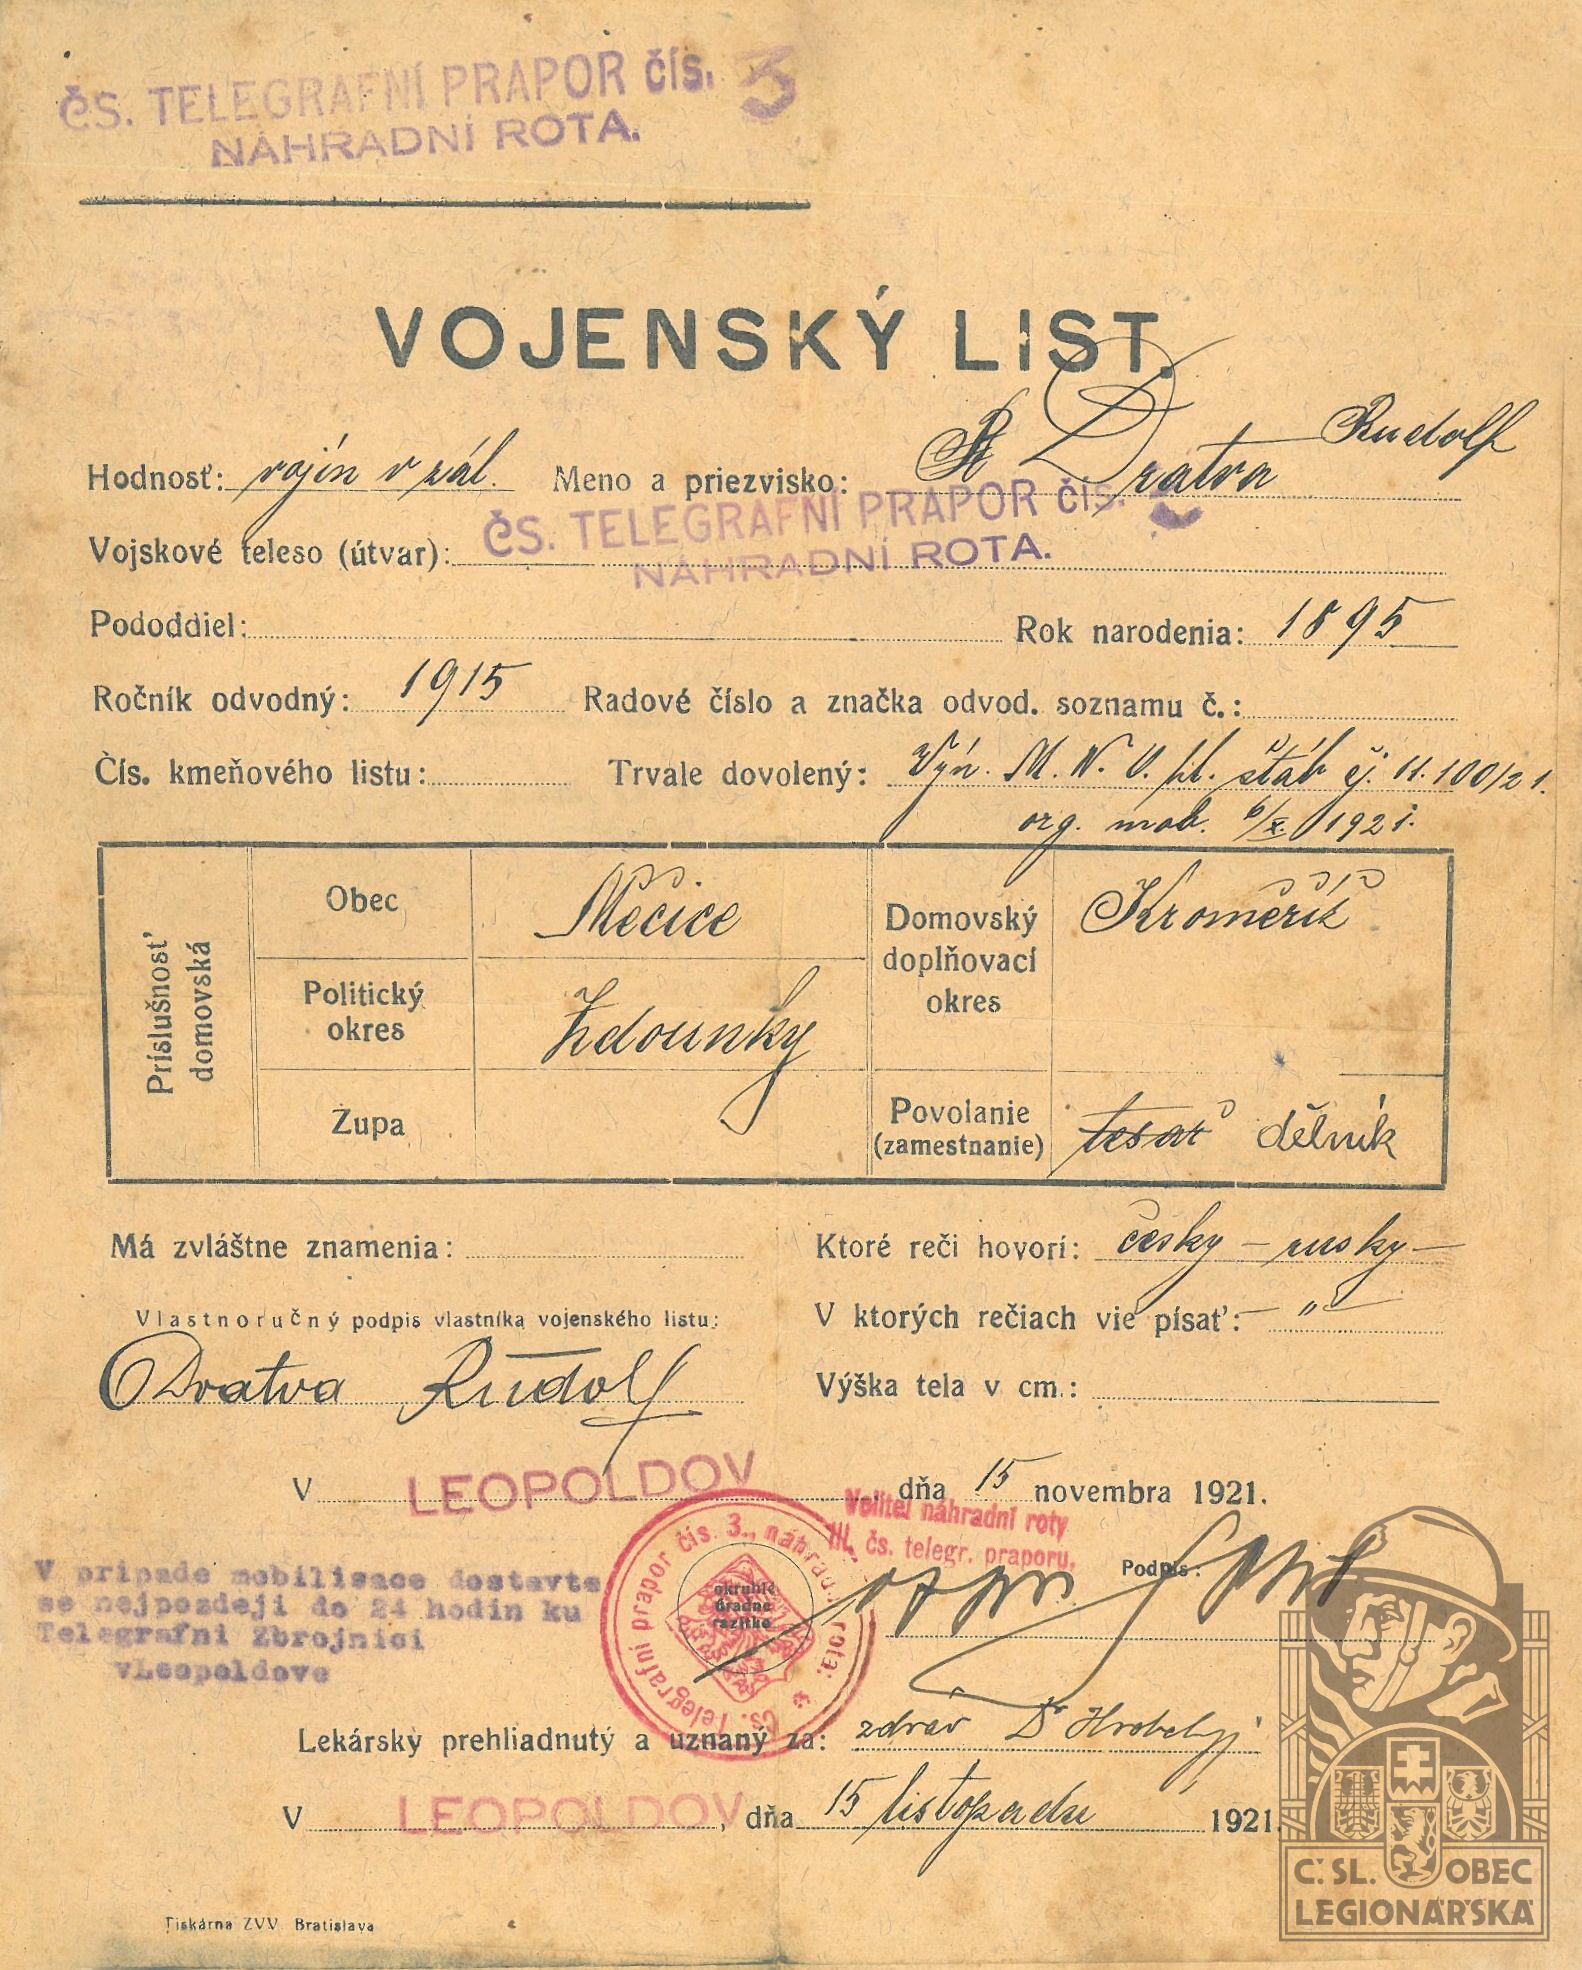 ČS. TELEGRAFNÍ PRAPOR čís. 3
NÁHRADNÍ ROTA.
VOJENSKÝ LIST.
Hodnosť: vojín v zál. Meno a priezvisko: Dratva Rudolf
Vojskové teleso (útvar): ČS. TELEGRAFNÍ PRAPOR čís.
NÁHRADNÍ ROTA.
Pododdiel: Rok narodenia: 1895
Ročník odvodný: 1915 Radové číslo a značka odvod. soznamu č.:
Čís. kmeňového listu: Trvale dovolený: Výn. M.N.O. hl. štáb čj. 11.100/21.
org. mob. 6/X. 1921.
Príslušnosť domovská
Obec Měčice
Domovský doplňovací okres Kroměříž
Politický okres Zdounky
Župa
Povolanie (zamestnanie) tesař dělník
Má zvláštne znamenia: Ktoré reči hovorí: česky – rusky –
Vlastnoručný podpis vlastníka vojenského listu: V ktorých rečiach vie písať: – „ –
Dratva Rudolf Výška tela v cm.:
V LEOPOLDOV dňa 15 novembra 1921.
Velitel náhradní roty
III. čs. telegr. praporu.
Podpis:
V pripade mobilisace dostavte
se nejpozdeji do 24 hodin ku
Telegrafni Zbrojnici
vLeopoldove
Čs. Telegrafní prapor čís. 3., náhrad. rota.
okruhlé
úradne
razítko
Lekársky prehliadnutý a uznaný za: zdráv Dr
V LEOPOLDOV, dňa 15 listopadu 1921.
Tiskárna ZVV Bratislava
Č.SL. OBEC
LEGIONÁŘSKÁ